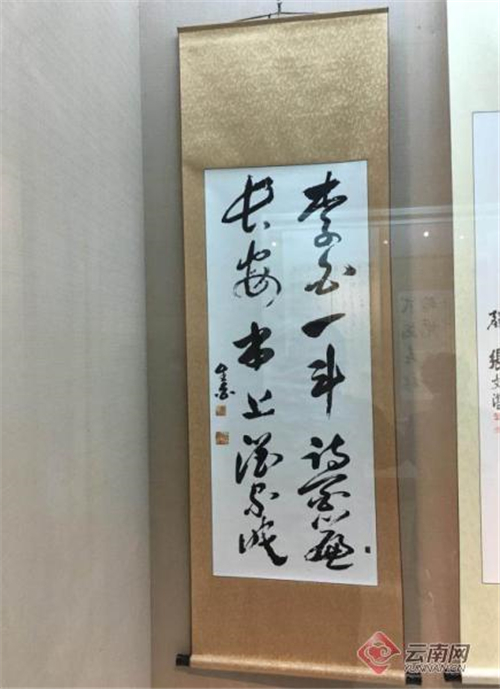 李白一斗詩百篇
長安市上酒家眠
云南网
YUNNAN.CN